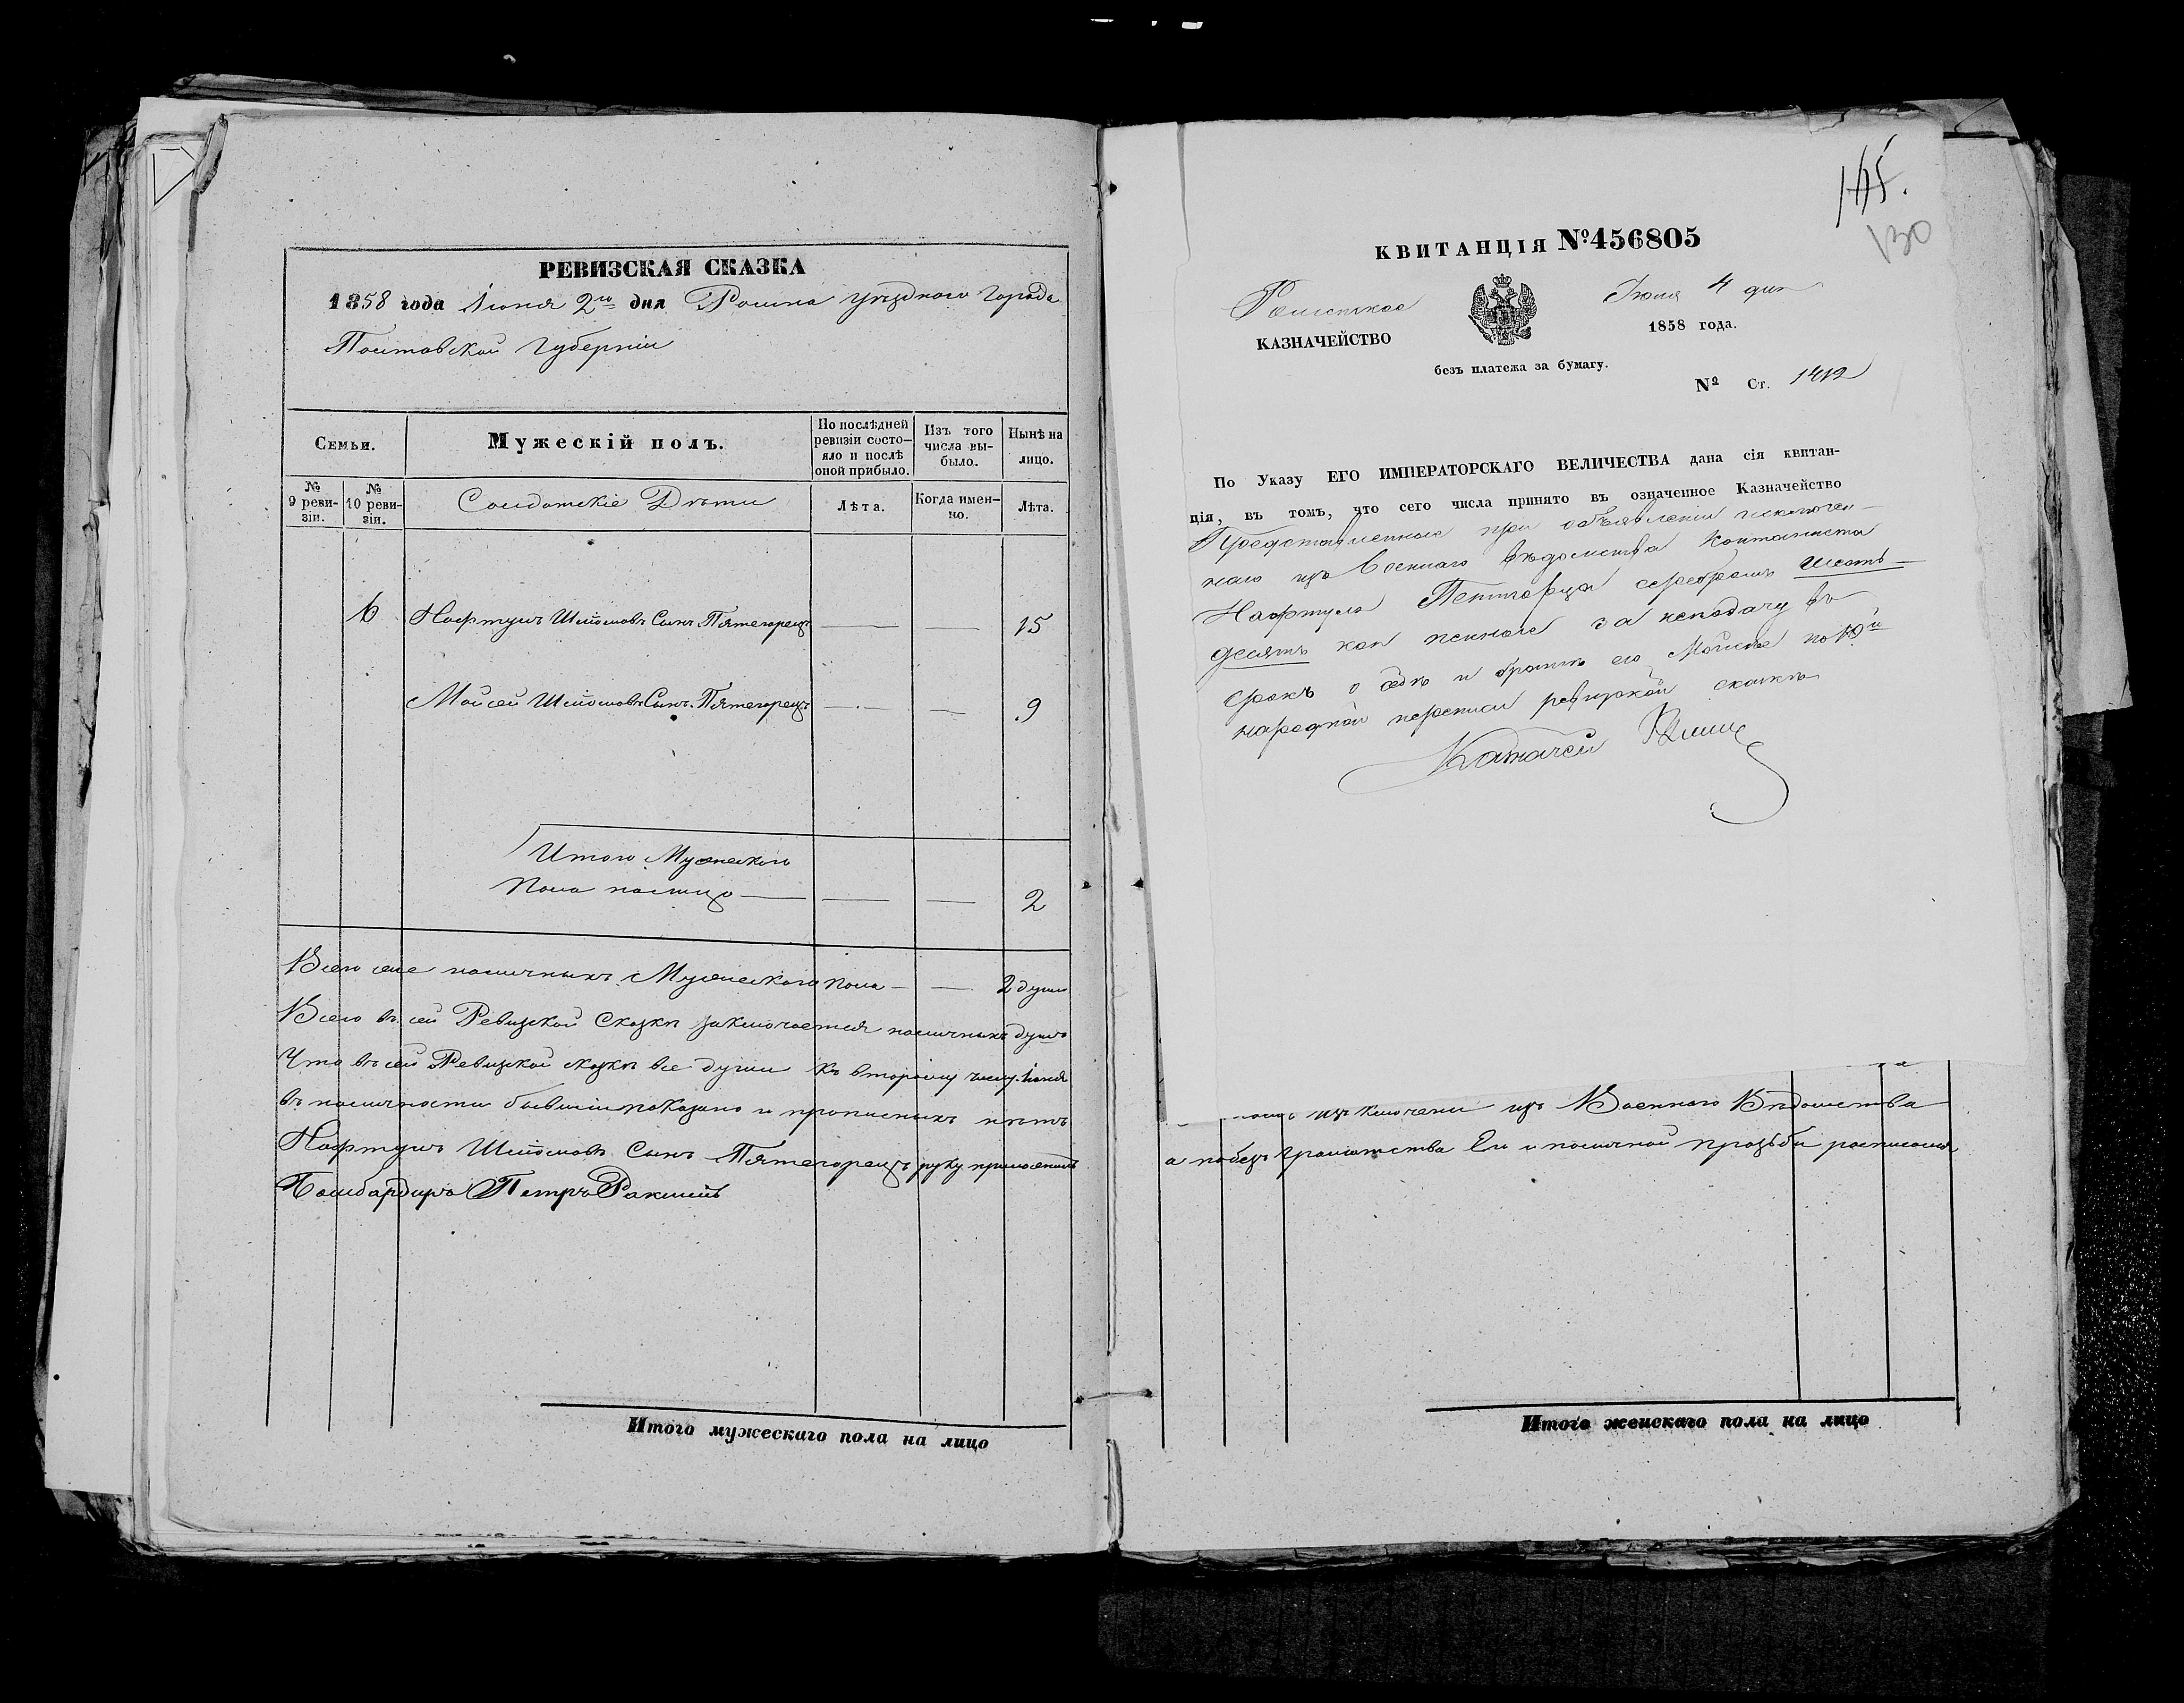 РЕВИЗСКАЯ СКАЗКА
1858 года Іюня 2го дня Ромна уѣзднаго города
Полтавской губерніи
Семьи.
Мужескій полъ.
По послѣдней ревизіи состо-
яло и послѣ
оной прибыло.
Изъ того
числа вы-
было.
Нынѣ на
лицо.
№
9 реви-
зіи.
№
10 реви-
зіи.
Солдатскіе Дѣти
Лѣта.
Когда имен-
но.
Лѣта.
6 Нафтулъ Шліомовъ Сынъ Пятегорецъ — — 15
Мойсей Шліомовъ Сынъ Пятегорецъ — — 9
Итого Мужескаго
Пола налицо — — — 2
Всего наличныхъ Мужескаго пола — — 2 души
Всего въ сей Ревизской Сказкѣ заключается наличныхъ душъ
Что въ сей Ревизской сказкѣ все души къ второму числу Іюня
въ наличности бывшіи показано и прописныхъ нѣтъ
Нафтулъ Шліомовъ Сынъ Пятегорецъ руку приложилъ
Бомбардиръ Петръ
Итого мужескаго пола на лицо
145.
130
КВИТАНЦІЯ №456805
Роменское
КАЗНАЧЕЙСТВО
Іюня 4 дня
1858 года.
безъ платежа за бумагу.
№ Ст. 1412
По Указу ЕГО ИМПЕРАТОРСКАГО ВЕЛИЧЕСТВА дана сія квитан-
ція, въ томъ, что сего числа принято въ означенное Казначейство
Представленные при объявленіи исключен-
наго изъ Военнаго вѣдомства Кантониста
Нафтула серебромъ шесть-
десятъ коп пенные за неподачу въ
срокъ о себѣ и братѣ его Мойсѣе по 10й
народной переписи ревизской сказки
Казначей
исключены изъ Военнаго Вѣдомства
а по безграмотства Его и по личной прозьби росписался
Итого женскаго пола на лицо